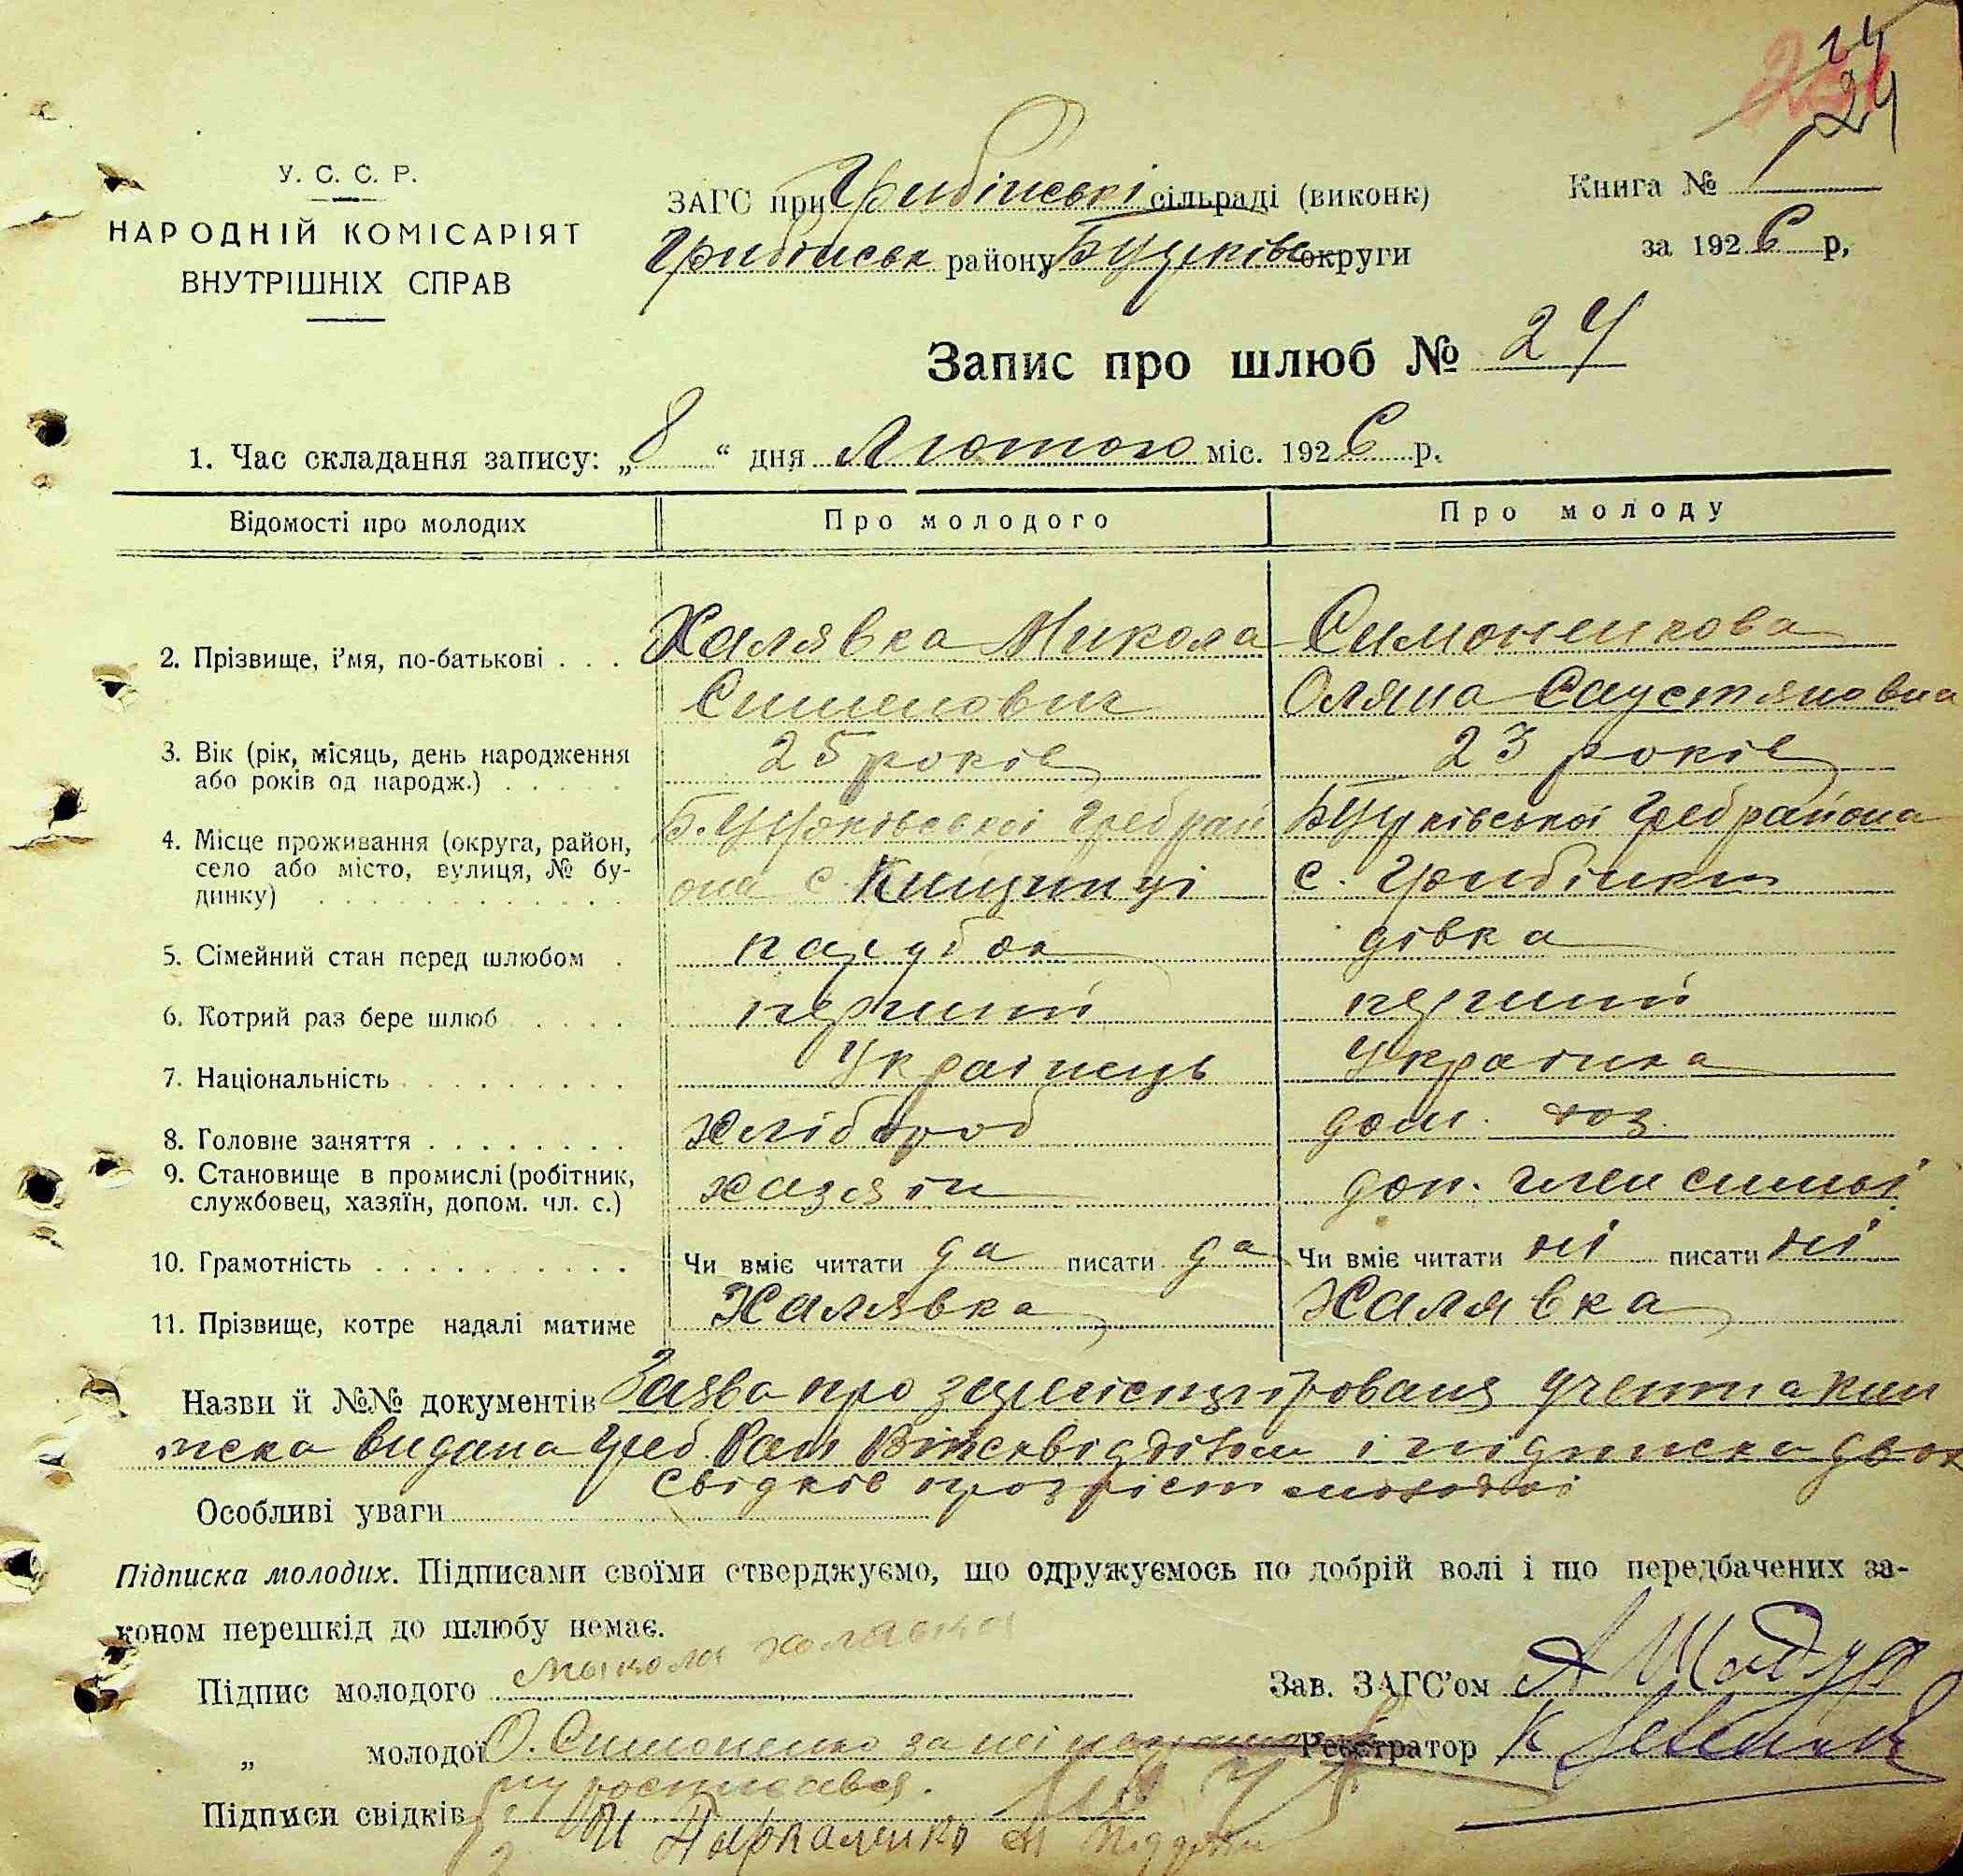 24
24
У. С. С. Р.
НАРОДНІЙ КОМІСАРІЯТ
ВНУТРІШНІХ СПРАВ
ЗАГС при Грибінські сільраді (виконк)
Грибінськ району Б Церківс округи
Книга № 1
за 1926 р,
Запис про шлюб № 24
1. Час складання запису: „8“ дня Лютого міс. 1926 р.
Відомості про молодих Про молодого Про молоду
2. Прізвище, і’мя, по-батькові . . . Халявка Микола Симоненкова
Сименович Оляна Саустяновна
3. Вік (рік, місяць, день народження 25 років 23 років
або років од народж.) . . . . .
4. Місце проживання (округа, район, Б. Церківської Гребрай БЦерківської Гребрайона
село або місто, вулиця, № бу- она с. Кищинці с. Грибінки
динку) . . . . . . . . . . . .
5. Сімейний стан перед шлюбом . парубок дівка
6. Котрий раз бере шлюб . . . . перший перший
7. Національність . . . . . . . . . Українець Українка
8. Головне заняття . . . . . . . . хлібороб дом. хоз.
9. Становище в промислі (робітник, хазяїн доп. член симьї
службовец, хазяїн, допом. чл. с.)
10. Грамотність . . . . . . . . . . Чи вміє читати да писати да Чи вміє читати ні писати ні
11. Прізвище, котре надалі матиме Халявка Халявка
Назви й №№ документів Заява про
видана Греб Рай і підписка двох
свідків
Особливі уваги
Підписка молодих. Підписами своїми стверджуємо, що одружуємось по добрій волі і що передбачених за-
коном перешкід до шлюбу немає.
Підпис молодого Микола Халявка Зав. ЗАГС’ом А
„ молодої О. Симоненко за неї Реєстратор К
росписався.
Підписи свідків 1.
2.